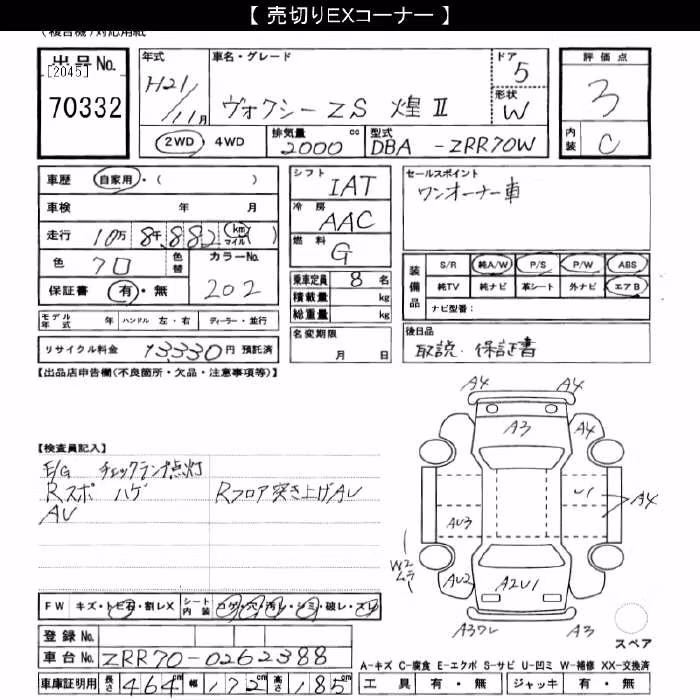 【 売切りEXコーナー 】
出品No.
[2045]
70332
年式
H21/11月
車名・グレード
ヴォクシー ZS 煌 II
ドア
5
形状
W
評価点
3
内装
C
2WD ・ 4WD
排気量
2000 cc
型式
DBA -ZRR70W
車歴 自家用・( )
車検 年 月
走行 10万 8千 882 (km マイル)
色 クロ 色替
カラーNo.
202
保証書 有・無
モデル年式 年 ハンドル 左・右 ディーラー・並行
リサイクル料金 13330円 預託済
シフト
IAT
冷房
AAC
燃料
G
乗車定員 8 名
積載量 kg
総重量 kg
名変期限
月 日
セールスポイント
ワンオーナー車
装備品
S/R 純A/W P/S P/W ABS
純TV 純ナビ 革シート 外ナビ エアB
ナビ型番：
後日品
取説・保証書
【出品店申告欄(不良箇所・欠品・注意事項等)】
【検査員記入】
E/G チェックランプ点灯
Rスポ ハゲ Rフロア突き上げAU
AU
FW キズ・トビ石・割レX シート内装 コゲ・穴・汚レ・シミ・破レ・スレ
登録No.
車台No. ZRR70-0262388
車庫証明用 長さ 464cm 幅 172cm 高さ 185cm
A4 A4
A3
A4
U1
A4
AU3
W2
ムラ
AU2
A2U1
A3ワレ
A3
スペア
A-キズ C-腐食 E-エクボ S-サビ U-凹ミ W-補修 XX-交換済
工具 有・無 ジャッキ 有・無